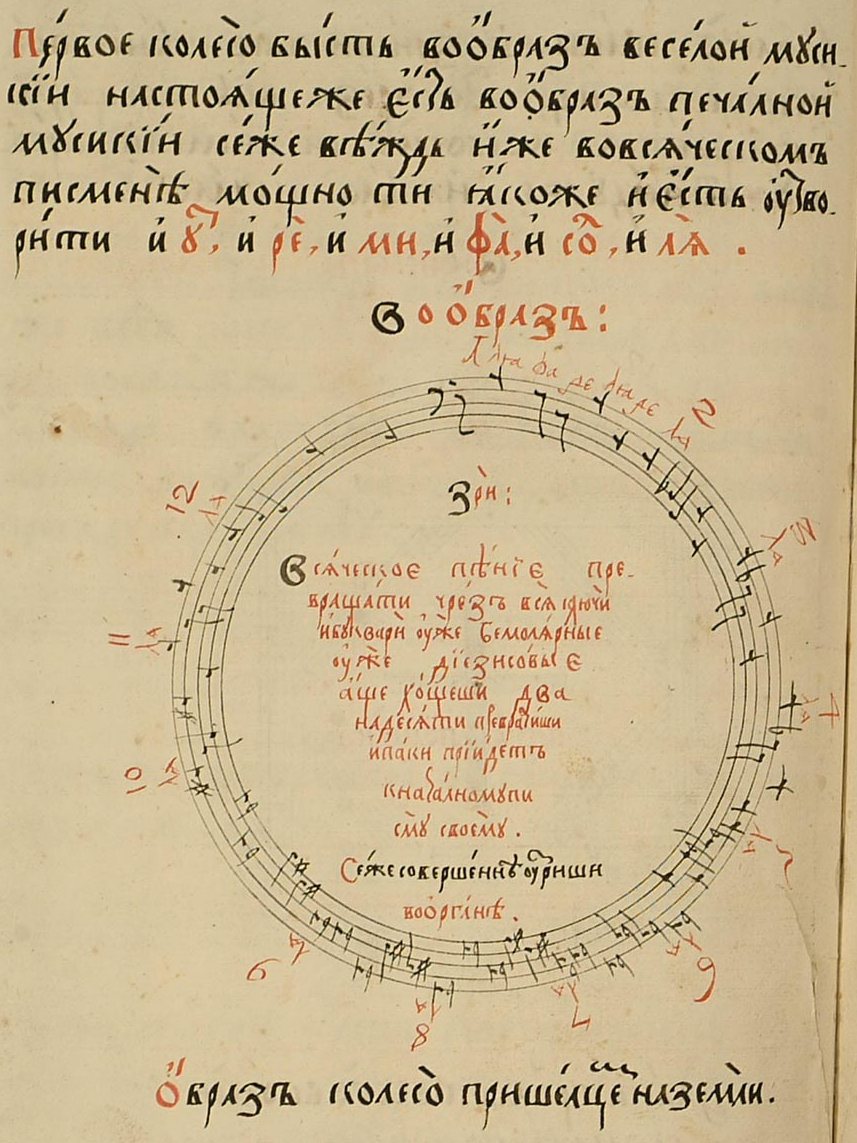 Пе́рвое колесо̀ бы́сть воо́бразъ весе́лой муси-
кі́и настоѧ́щееже є҆́сть воо́бразъ печа́лной
мѹсикі́и се́же всѣ́ждь и҆́же вовсѧ́ческомъ
писменѣ̀ мо́щно ти ꙗ҆́коже и҆ є҆́сть ѹ҆тво-
ри́ти и҆ ѹ҆̀, и҆ рѐ, и҆ ми, и҆ фа̀, и҆ со̀, и҆ лѧ̀.
Воо́бразъ:
Зрѝ:
Всѧ́ческое пѣ́нїе пре-
враща́ти чрезъ всѧ̀ ключѝ
и҆ буквари̑ ѹ҆́же бемолѧ́рные
ѹ҆́же дїезисовы́е
а҆́ще хо́щеши два
на́десѧти преврати́ши
и҆ па́ки прїи́детъ
кнача́лному пи
смѹ̀ своемѹ̀.
Се́же соверше́ннѣ ѹ҆́зриши
воорга́нѣ.
2
3
4
5
6
7
8
9
10
11
12
О҆́бразъ колесо̀ прише́дще наземлѝ.